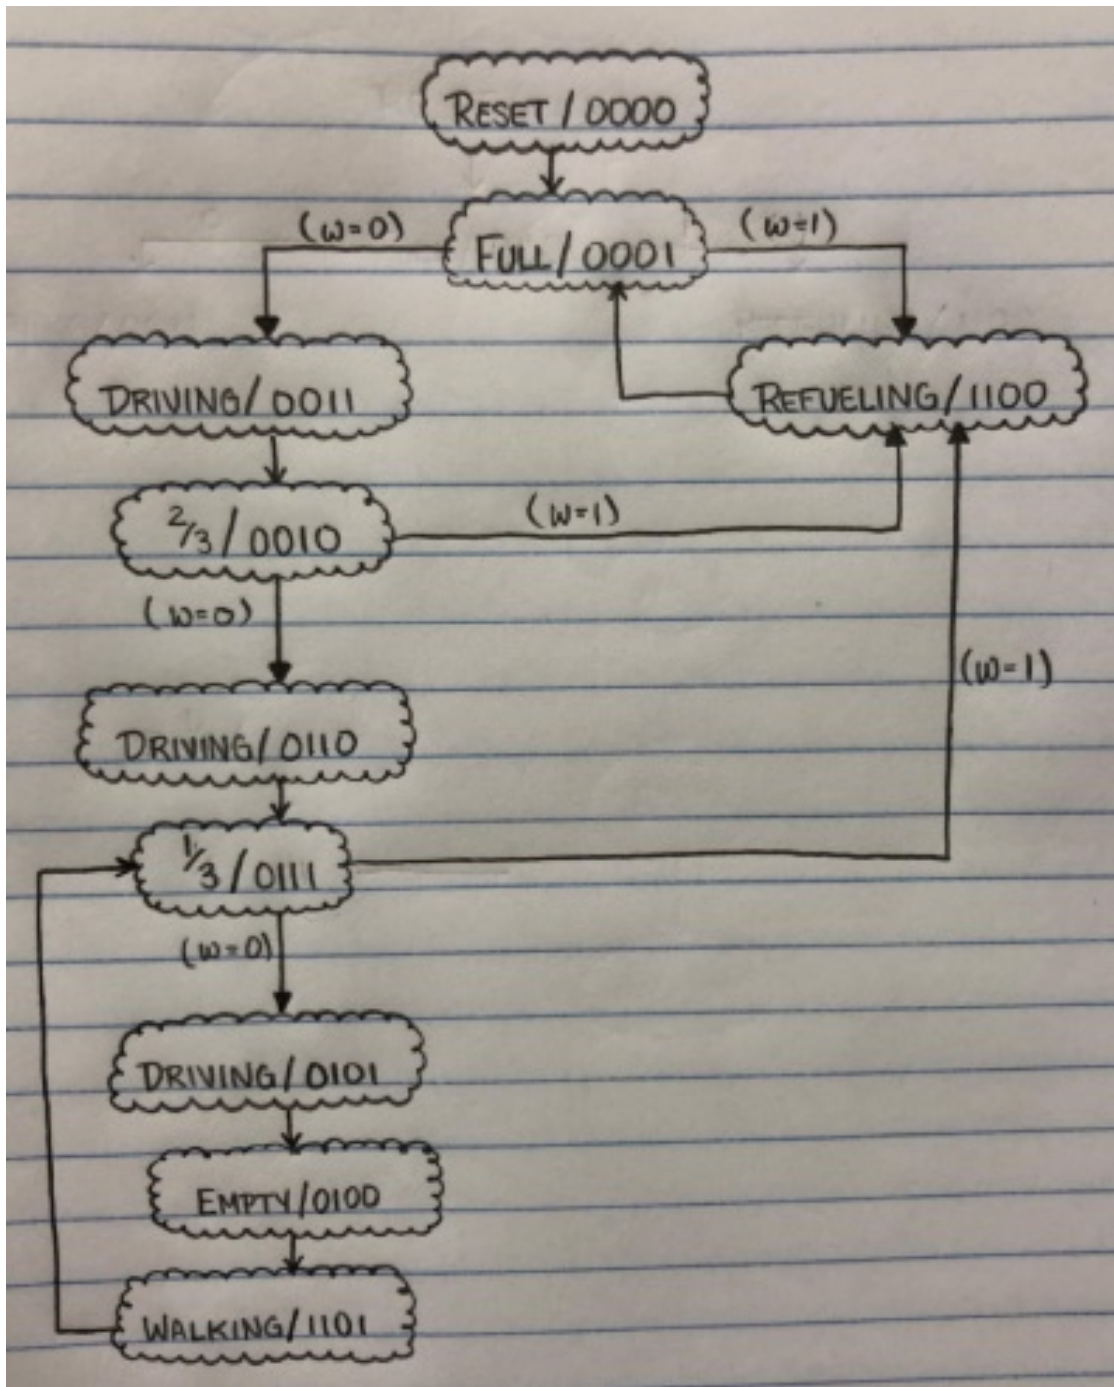 RESET / 0000
(w=0)
(w=1)
FULL / 0001
DRIVING / 0011
REFUELING / 1100
2/3 / 0010
(w=1)
(w=0)
(w=1)
DRIVING / 0110
1/3 / 0111
(w=0)
DRIVING / 0101
EMPTY / 0100
WALKING / 1101